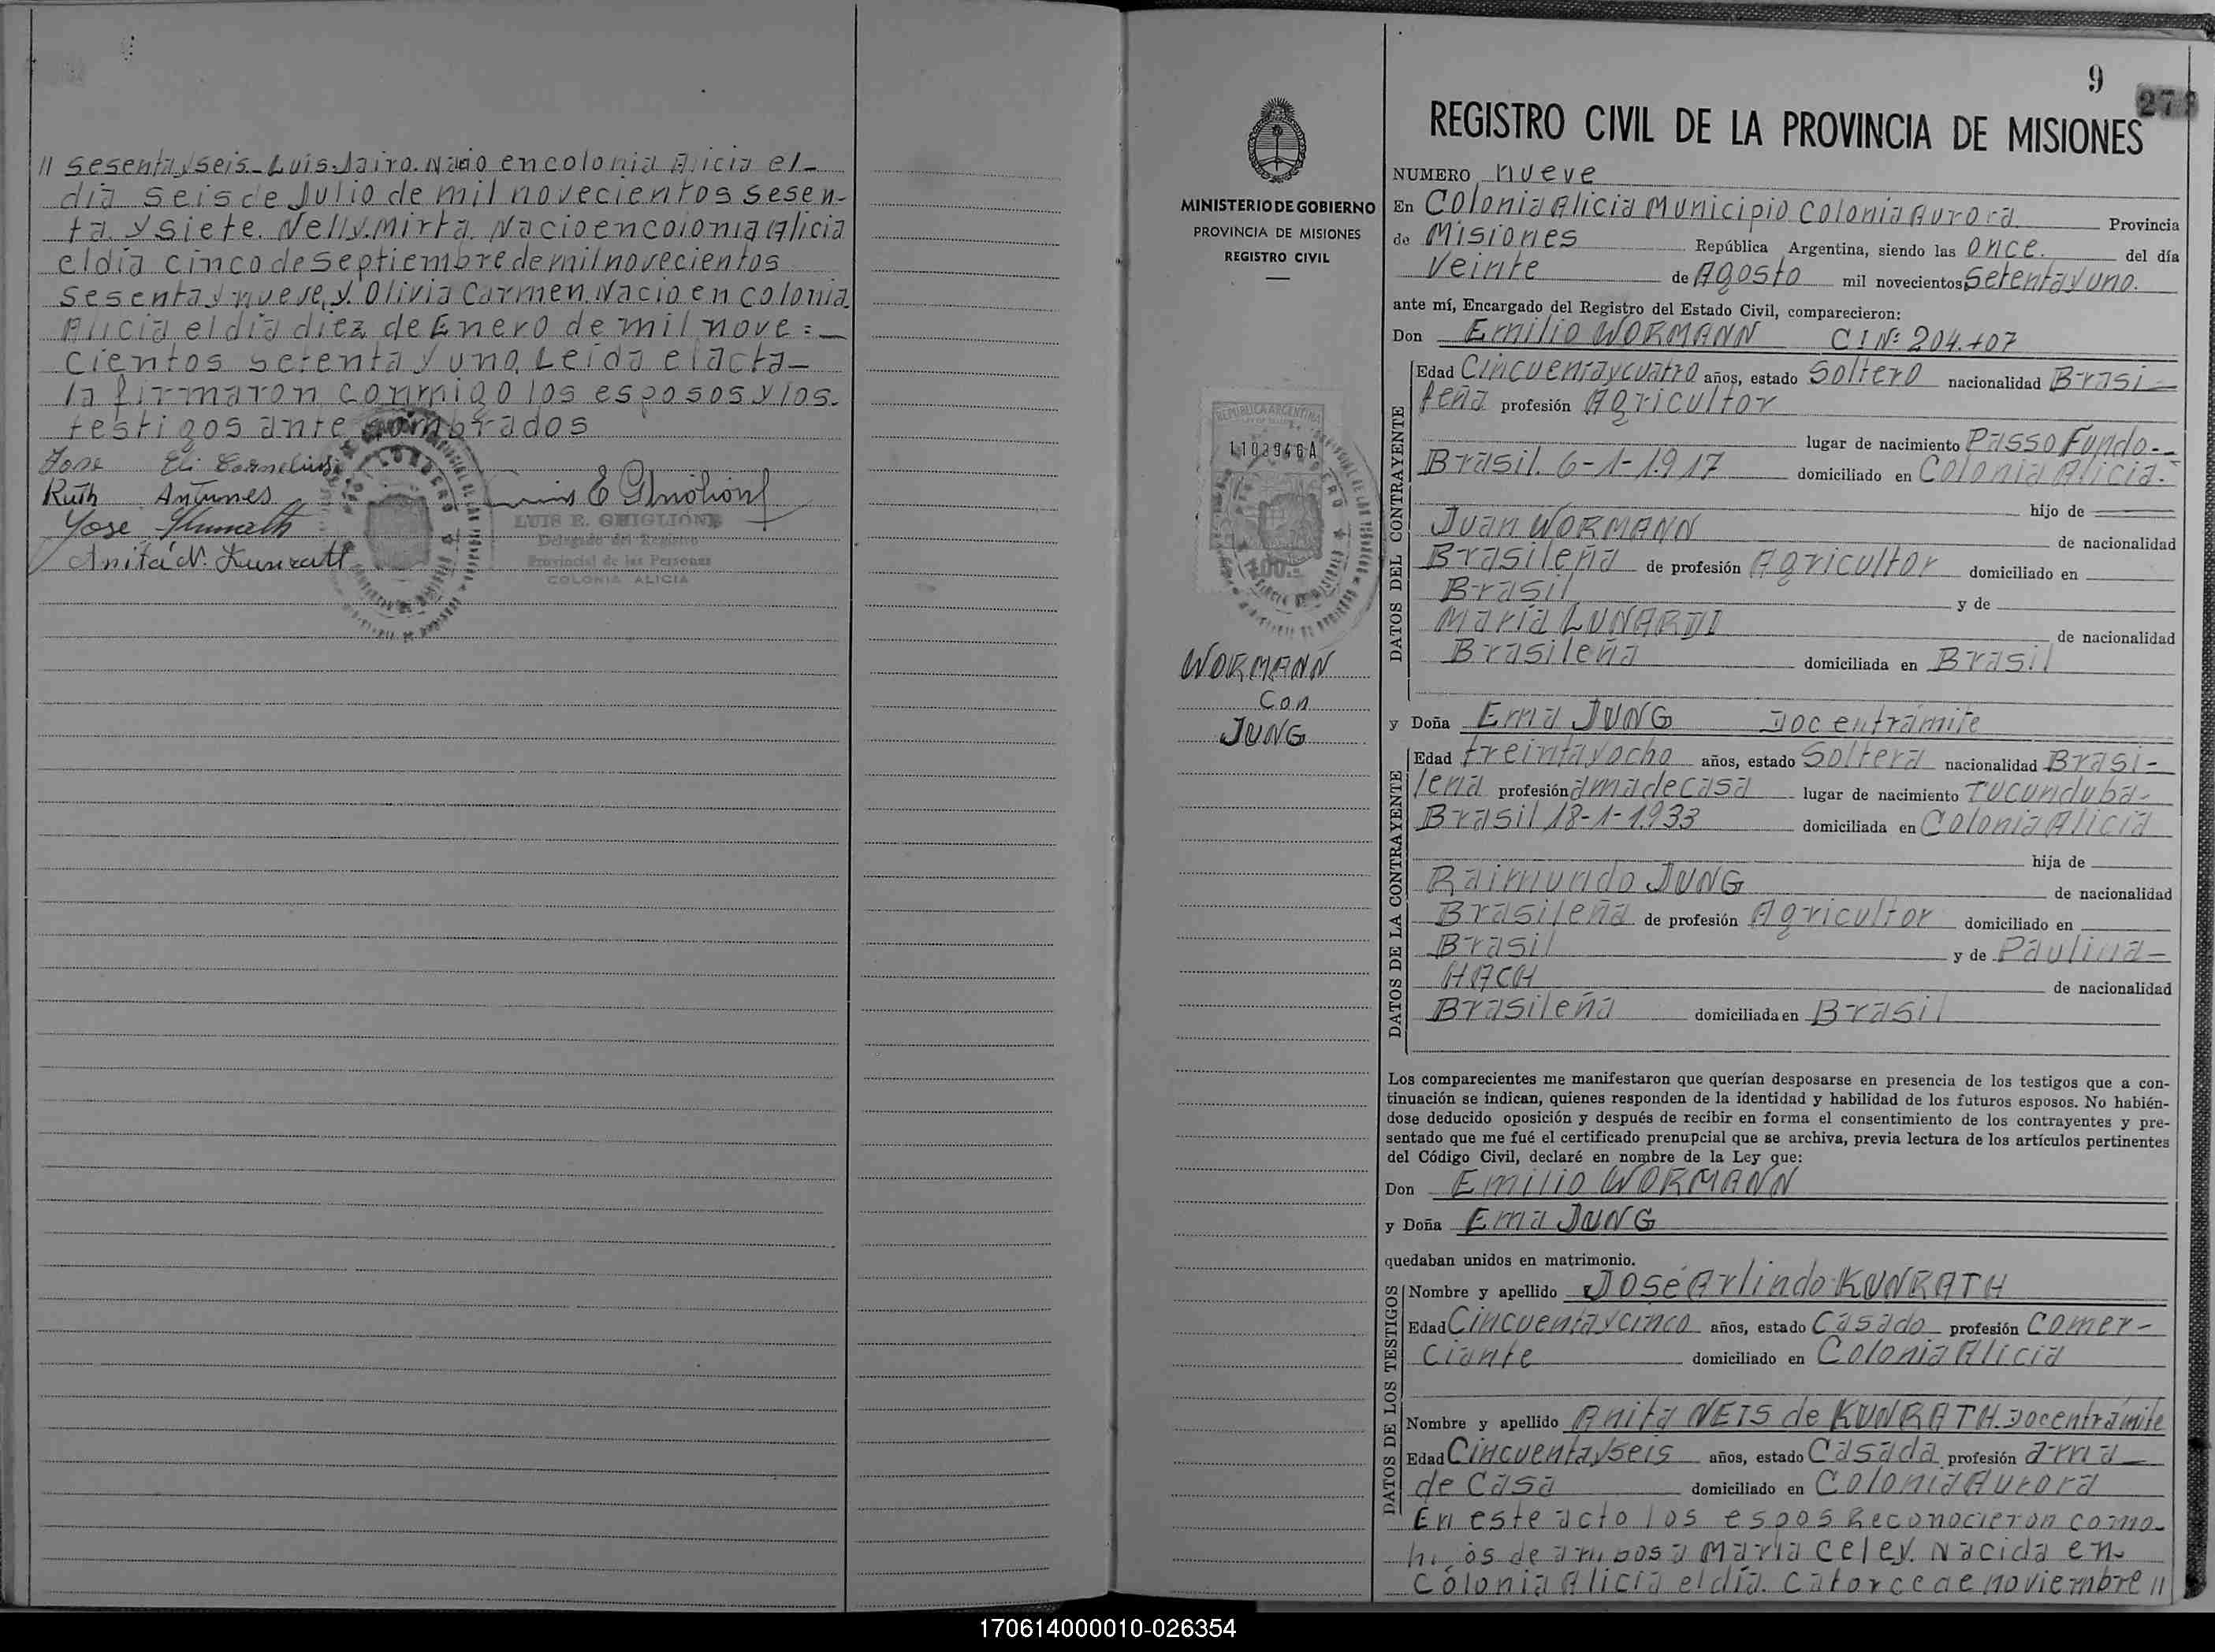 // sesenta y seis - Luis Jairo. Nacio en colonia Alicia el-
dia seis de Julio de mil novecientos sesen-
ta y siete. Nelly Mirta. Nacio en colonia Alicia
el dia cinco de Septiembre de mil novecientos
sesenta y nueve, y. Olivia Carmen. Nacio en colonia
Alicia el dia diez de Enero de mil nove =-
cientos setenta y uno, Leida el acta-
la firmaron conmigo los esposos y los.
testigos ante nombrados
Jose Eli Cornelius
Ruth Antunes
Jose Kunrath
Anita N. Kunrath
LUIS E. GHIGLIONE
Delegado del Registro
Provincial de las Personas
COLONIA ALICIA
MINISTERIO DE GOBIERNO
PROVINCIA DE MISIONES
REGISTRO CIVIL
REPUBLICA ARGENTINA
1103946A
WORMANN
Con
JUNG
9
REGISTRO CIVIL DE LA PROVINCIA DE MISIONES
NUMERO nueve
En Colonia Alicia Municipio Colonia Aurora. Provincia
de Misiones República Argentina, siendo las once. del día
Veinte de Agosto mil novecientos Setenta y uno.
ante mí, Encargado del Registro del Estado Civil, comparecieron:
Don Emilio WORMANN C I Nº 204.407
DATOS DEL CONTRAYENTE
Edad Cincuenta y cuatro años, estado Soltero nacionalidad Brasi-
leña profesión Agricultor
lugar de nacimiento Passo Fundo-
Brasil. 6-1-1.917 domiciliado en Colonia Alicia.
hijo de
Juan WORMANN de nacionalidad
Brasileña de profesión Agricultor domiciliado en
Brasil y de
Maria LUNARDI de nacionalidad
Brasileña domiciliada en Brasil
y Doña Ema JUNG Doc en trámite
DATOS DE LA CONTRAYENTE
Edad treinta y ocho años, estado Soltera nacionalidad Brasi-
leña profesión ama de casa lugar de nacimiento Tucunduba-
Brasil 18-1-1.933 domiciliada en Colonia Alicia
hija de
Raimundo JUNG de nacionalidad
Brasileña de profesión Agricultor domiciliado en
Brasil y de Paulina-
HACH de nacionalidad
Brasileña domiciliada en Brasil
Los comparecientes me manifestaron que querían desposarse en presencia de los testigos que a con-
tinuación se indican, quienes responden de la identidad y habilidad de los futuros esposos. No habién-
dose deducido oposición y después de recibir en forma el consentimiento de los contrayentes y pre-
sentado que me fué el certificado prenupcial que se archiva, previa lectura de los artículos pertinentes
del Código Civil, declaré en nombre de la Ley que:
Don Emilio WORMANN
y Doña Ema JUNG
quedaban unidos en matrimonio.
DATOS DE LOS TESTIGOS
Nombre y apellido José Arlindo KUNRATH
Edad Cincuenta y cinco años, estado Casado profesión Comer-
ciante domiciliado en Colonia Alicia
Nombre y apellido Anita NEIS de KUNRATH. Doc en trámite
Edad Cincuenta y seis años, estado Casada profesión ama-
de Casa domiciliado en Colonia Aurora
En este acto los espos Reconocieron como-
hijos de ambos a Maria Celey. Nacida en-
Colonia Alicia el día. catorce de noviembre //
170614000010-026354